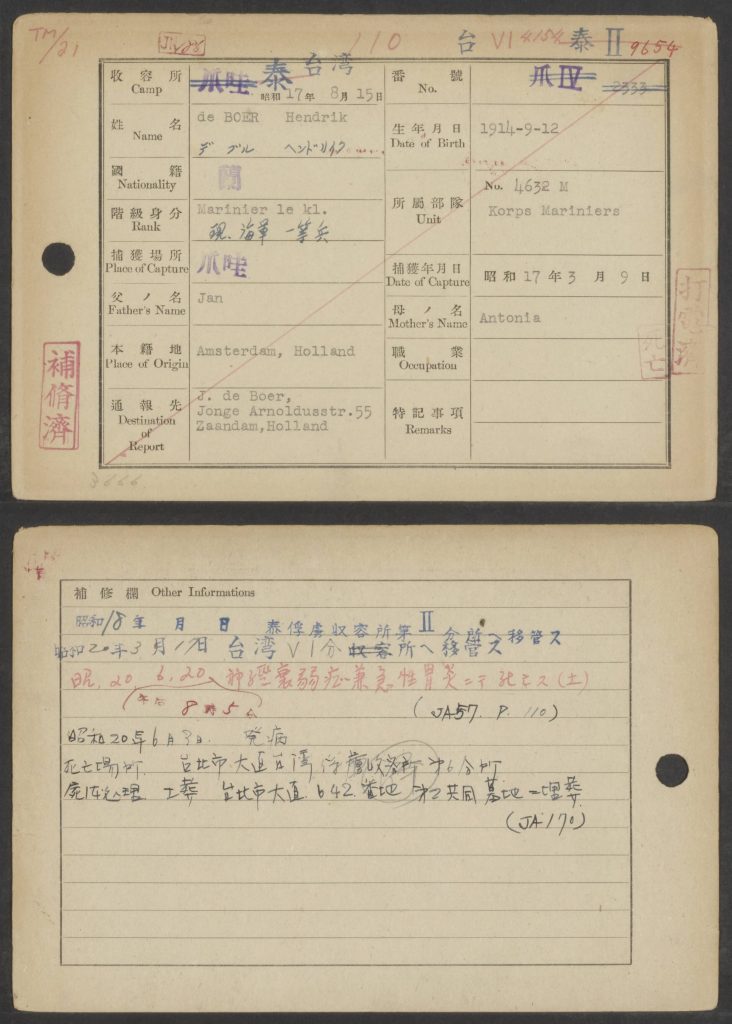 TM/21
110
台 VI 4154 泰 II 9654
收容所 Camp 爪哇 泰 台湾
昭和17年 8月 15日
番號 No. 爪IV 2333
姓名 Name de BOER Hendrik
デ ブル ヘンドリイク
生年月日 Date of Birth 1914-9-12
國籍 Nationality 蘭
所屬部隊 Unit No. 4632 M
Korps Mariniers
階級身分 Rank Marinier 1e kl.
現、海軍 一等兵
捕獲場所 Place of Capture 爪哇
捕獲年月日 Date of Capture 昭和 17 年 3 月 9 日
父ノ名 Father's Name Jan
母ノ名 Mother's Name Antonia
本籍地 Place of Origin Amsterdam, Holland
職業 Occupation
通報先 Destination of Report J. de Boer,
Jonge Arnoldusstr.55
Zaandam,Holland
特記事項 Remarks
補脩濟
死亡
3666
補修欄 Other Informations
昭和18年 月 日 泰俘虜収容所第II分所ヘ移管ス
昭和20年3月 日 台湾VI分収容所ヘ移管ス
昭、20、6、20、神経衰弱症兼急性胃炎ニテ死亡ス(土)
8時5分
(JA57. P. 110)
昭和20年6月3日 発病
死亡場所 台北市大直台湾俘虜収容所第6分所
屍体処理 土葬 台北市大直642番地 第2共同墓地ニ埋葬
(JA170)